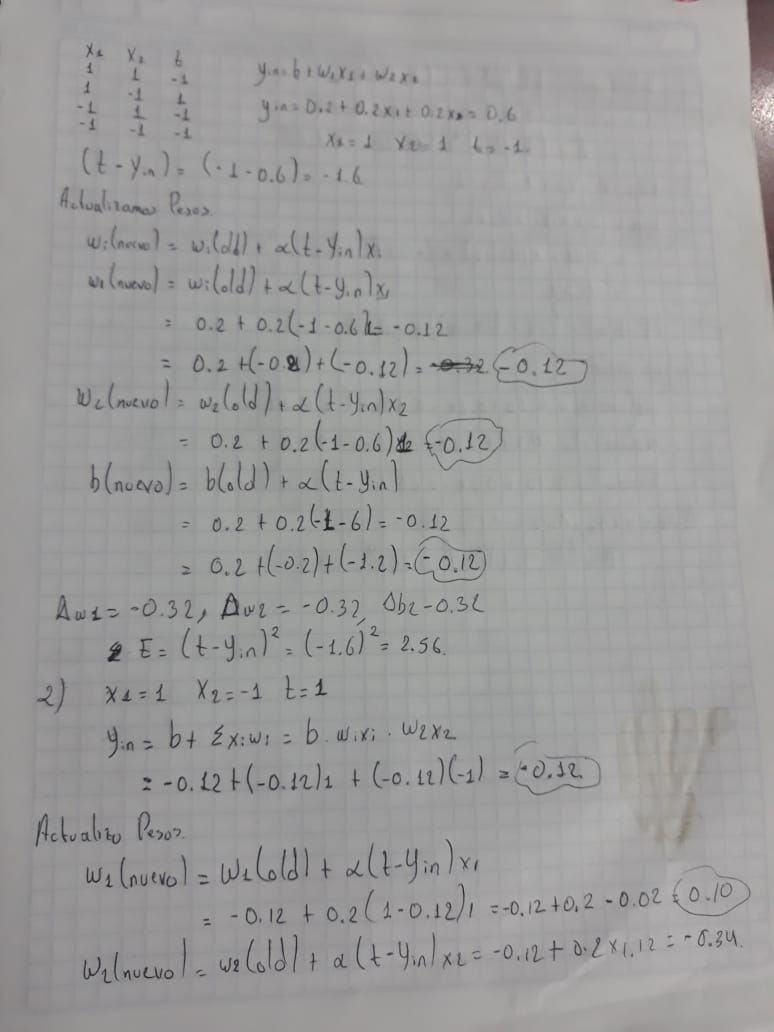 x1 x2 t
1 1 -1 yin = b + w1x1 + w2x2
1 -1 1
-1 1 -1 yin = 0.2 + 0.2x1 + 0.2x2 = 0.6
-1 -1 -1 x1 = 1 x2 = 1 t = -1
(t - yin) = (-1 - 0.6) = -1.6
Actualizamos Pesos.
wi(nuevo) = wi(old) + α(t - yin)xi
w1(nuevo) = wi(old) + α(t - yin)x1
= 0.2 + 0.2(-1 - 0.6)1 = -0.12
= 0.2 + (-0.2) + (-0.12) = -0.32 -0.12
w2(nuevo) = w2(old) + α(t - yin)x2
= 0.2 + 0.2(-1 - 0.6) = -0.12
b(nuevo) = b(old) + α(t - yin)
= 0.2 + 0.2(-1 - 6) = -0.12
= 0.2 + (-0.2) + (-1.2) = -0.12
Δw1 = -0.32, Δw2 = -0.32, Δb = -0.32
E = (t - yin)² = (-1.6)² = 2.56.
2) x1 = 1 x2 = -1 t = 1
yin = b + Σxiwi = b . wixi . w2x2
= -0.12 + (-0.12)1 + (-0.12)(-1) = -0.12.
Actualizo Pesos.
w1(nuevo) = w1(old) + α(t - yin)x1
= -0.12 + 0.2(1 - 0.12)1 = -0.12 + 0.2 - 0.02 = 0.10
w2(nuevo) = w2(old) + α(t - yin)x2 = -0.12 + 0.2 x 1.12 = -0.34.